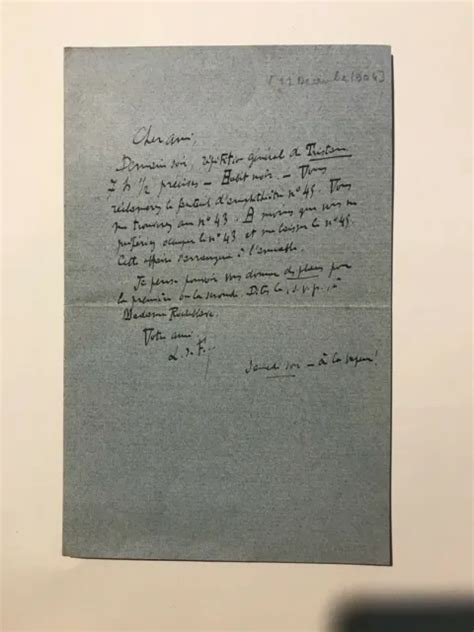 [12 Décembre 1904]
Cher ami,
Demain soir, répétition générale de Tristan
7 h 1/2 précises – Habit noir – Vous
réclamerez le fauteuil d'amphithéâtre n° 45. Vous
me trouverez au n° 43. A moins que vous ne
préfériez occuper le n° 43 et me laisser le n° 45.
Cette affaire s'arrangera à l'amiable.
Je pense pouvoir vous donner des places pour
la première ou la seconde. Dites-le, s.v.p., à
Madame
Votre ami
L. de F.
Samedi soir – à la vapeur!